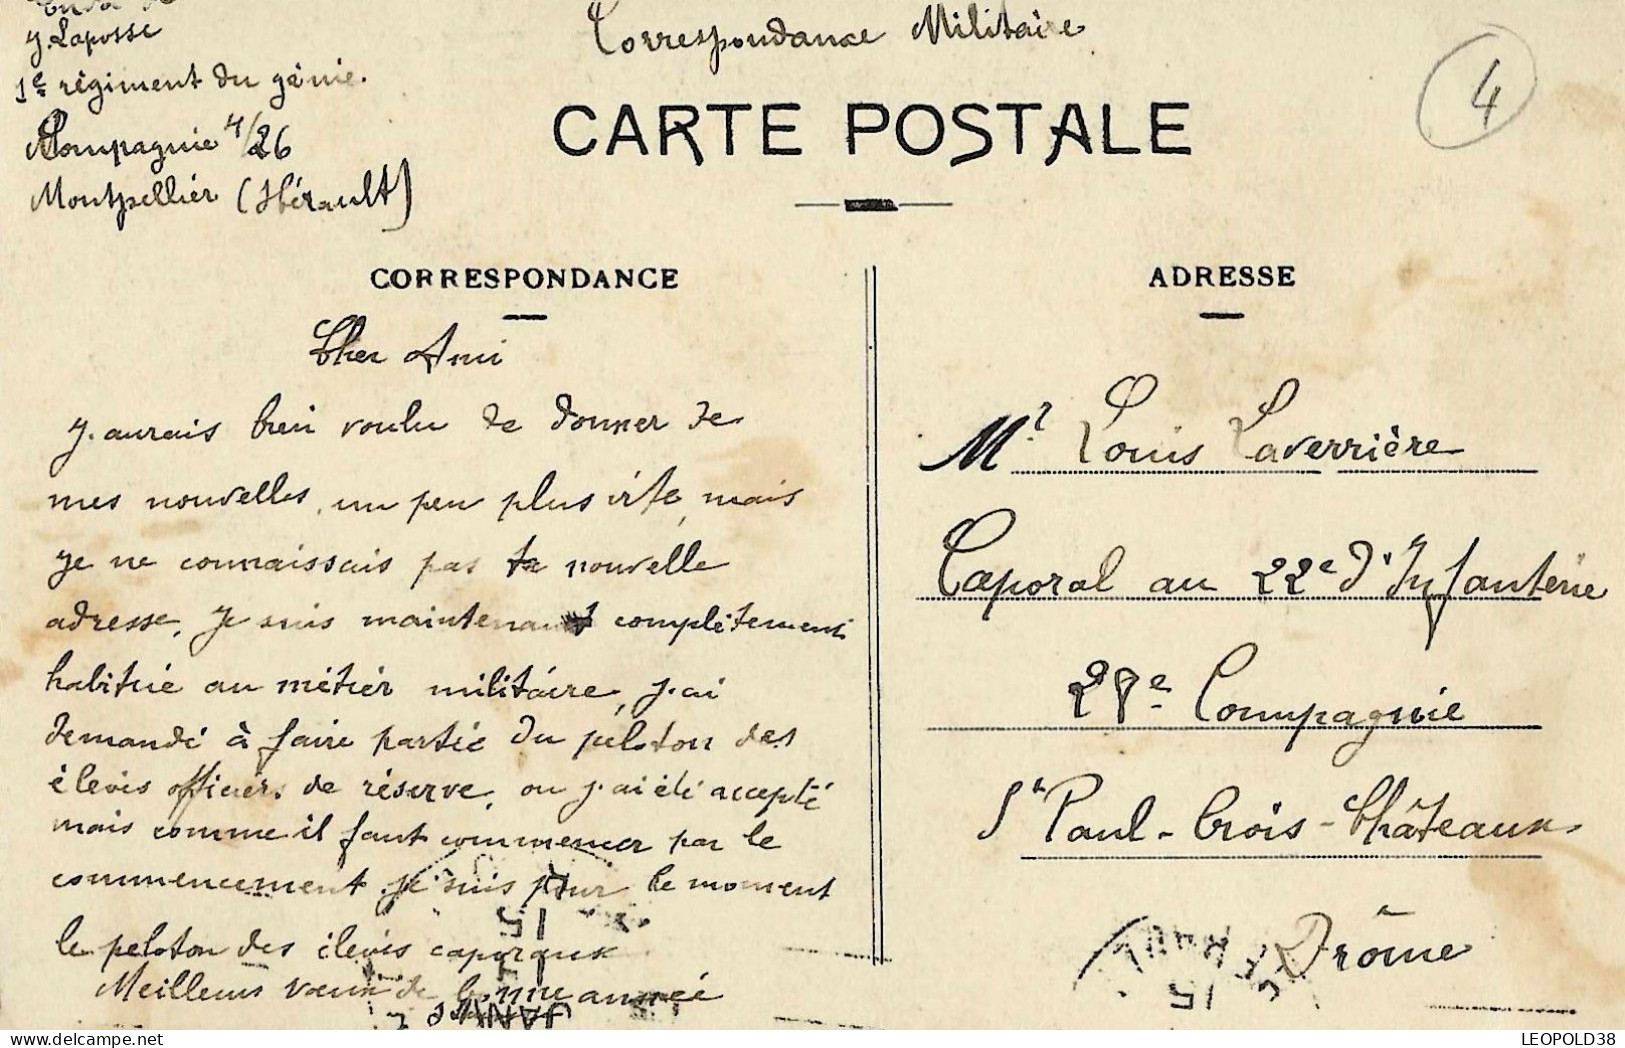 J. Laposse
1e régiment du génie.
Compagnie 4/26
Montpellier (Hérault)
Correspondance Militaire
CARTE POSTALE
4
CORRESPONDANCE
Cher Ami
J'aurais bien voulu te donner de
mes nouvelles, un peu plus vite, mais
je ne connaissais pas ta nouvelle
adresse. Je suis maintenant complètement
habitué au métier militaire, j'ai
demandé à faire partie du peloton des
élèves officiers de réserve, ou j'ai été accepté
mais comme il faut commencer par le
commencement je suis pour le moment
le peloton des élèves caporaux
Meilleurs vœux de bonne année
ADRESSE
Mr Louis Laverrière
Caporal au 22e d'Infanterie
28e Compagnie
St Paul-Trois-Châteaux
Drôme
15
JANV
15
LEOPOLD38